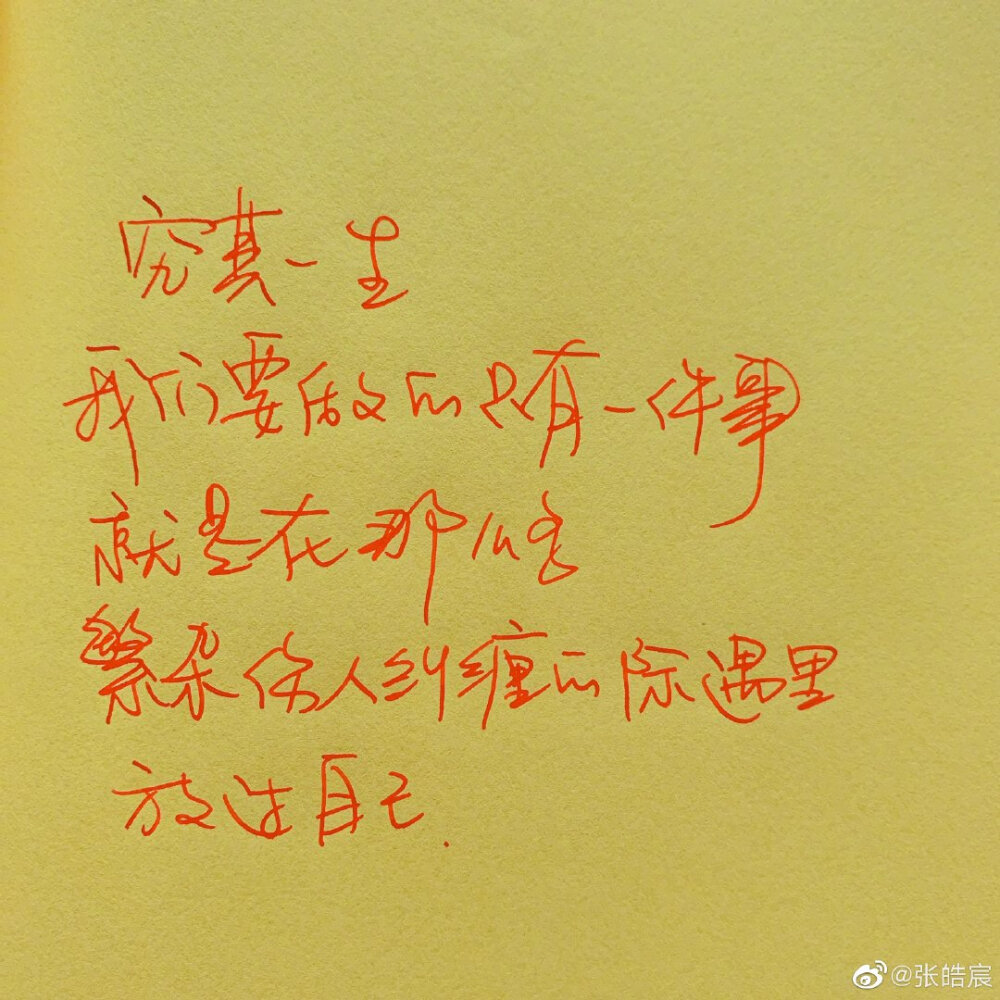 穷其一生
我们要做的只有一件事
就是在那些
繁杂伤人纠缠的际遇里
放过自己.
@张皓宸